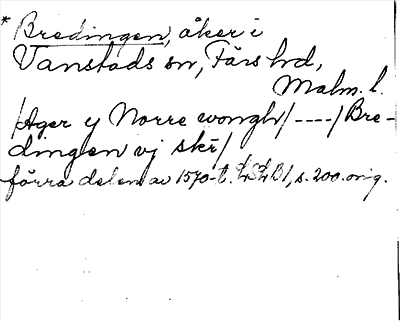 * Bredingen, åker i
Vanstads sn, Färs hd,
Malm. l.
/Ager y Norre wongh/ ----/ Bre-
dingen vj skr/
förra delen av 1570-t. LSLB1, s. 200. orig.